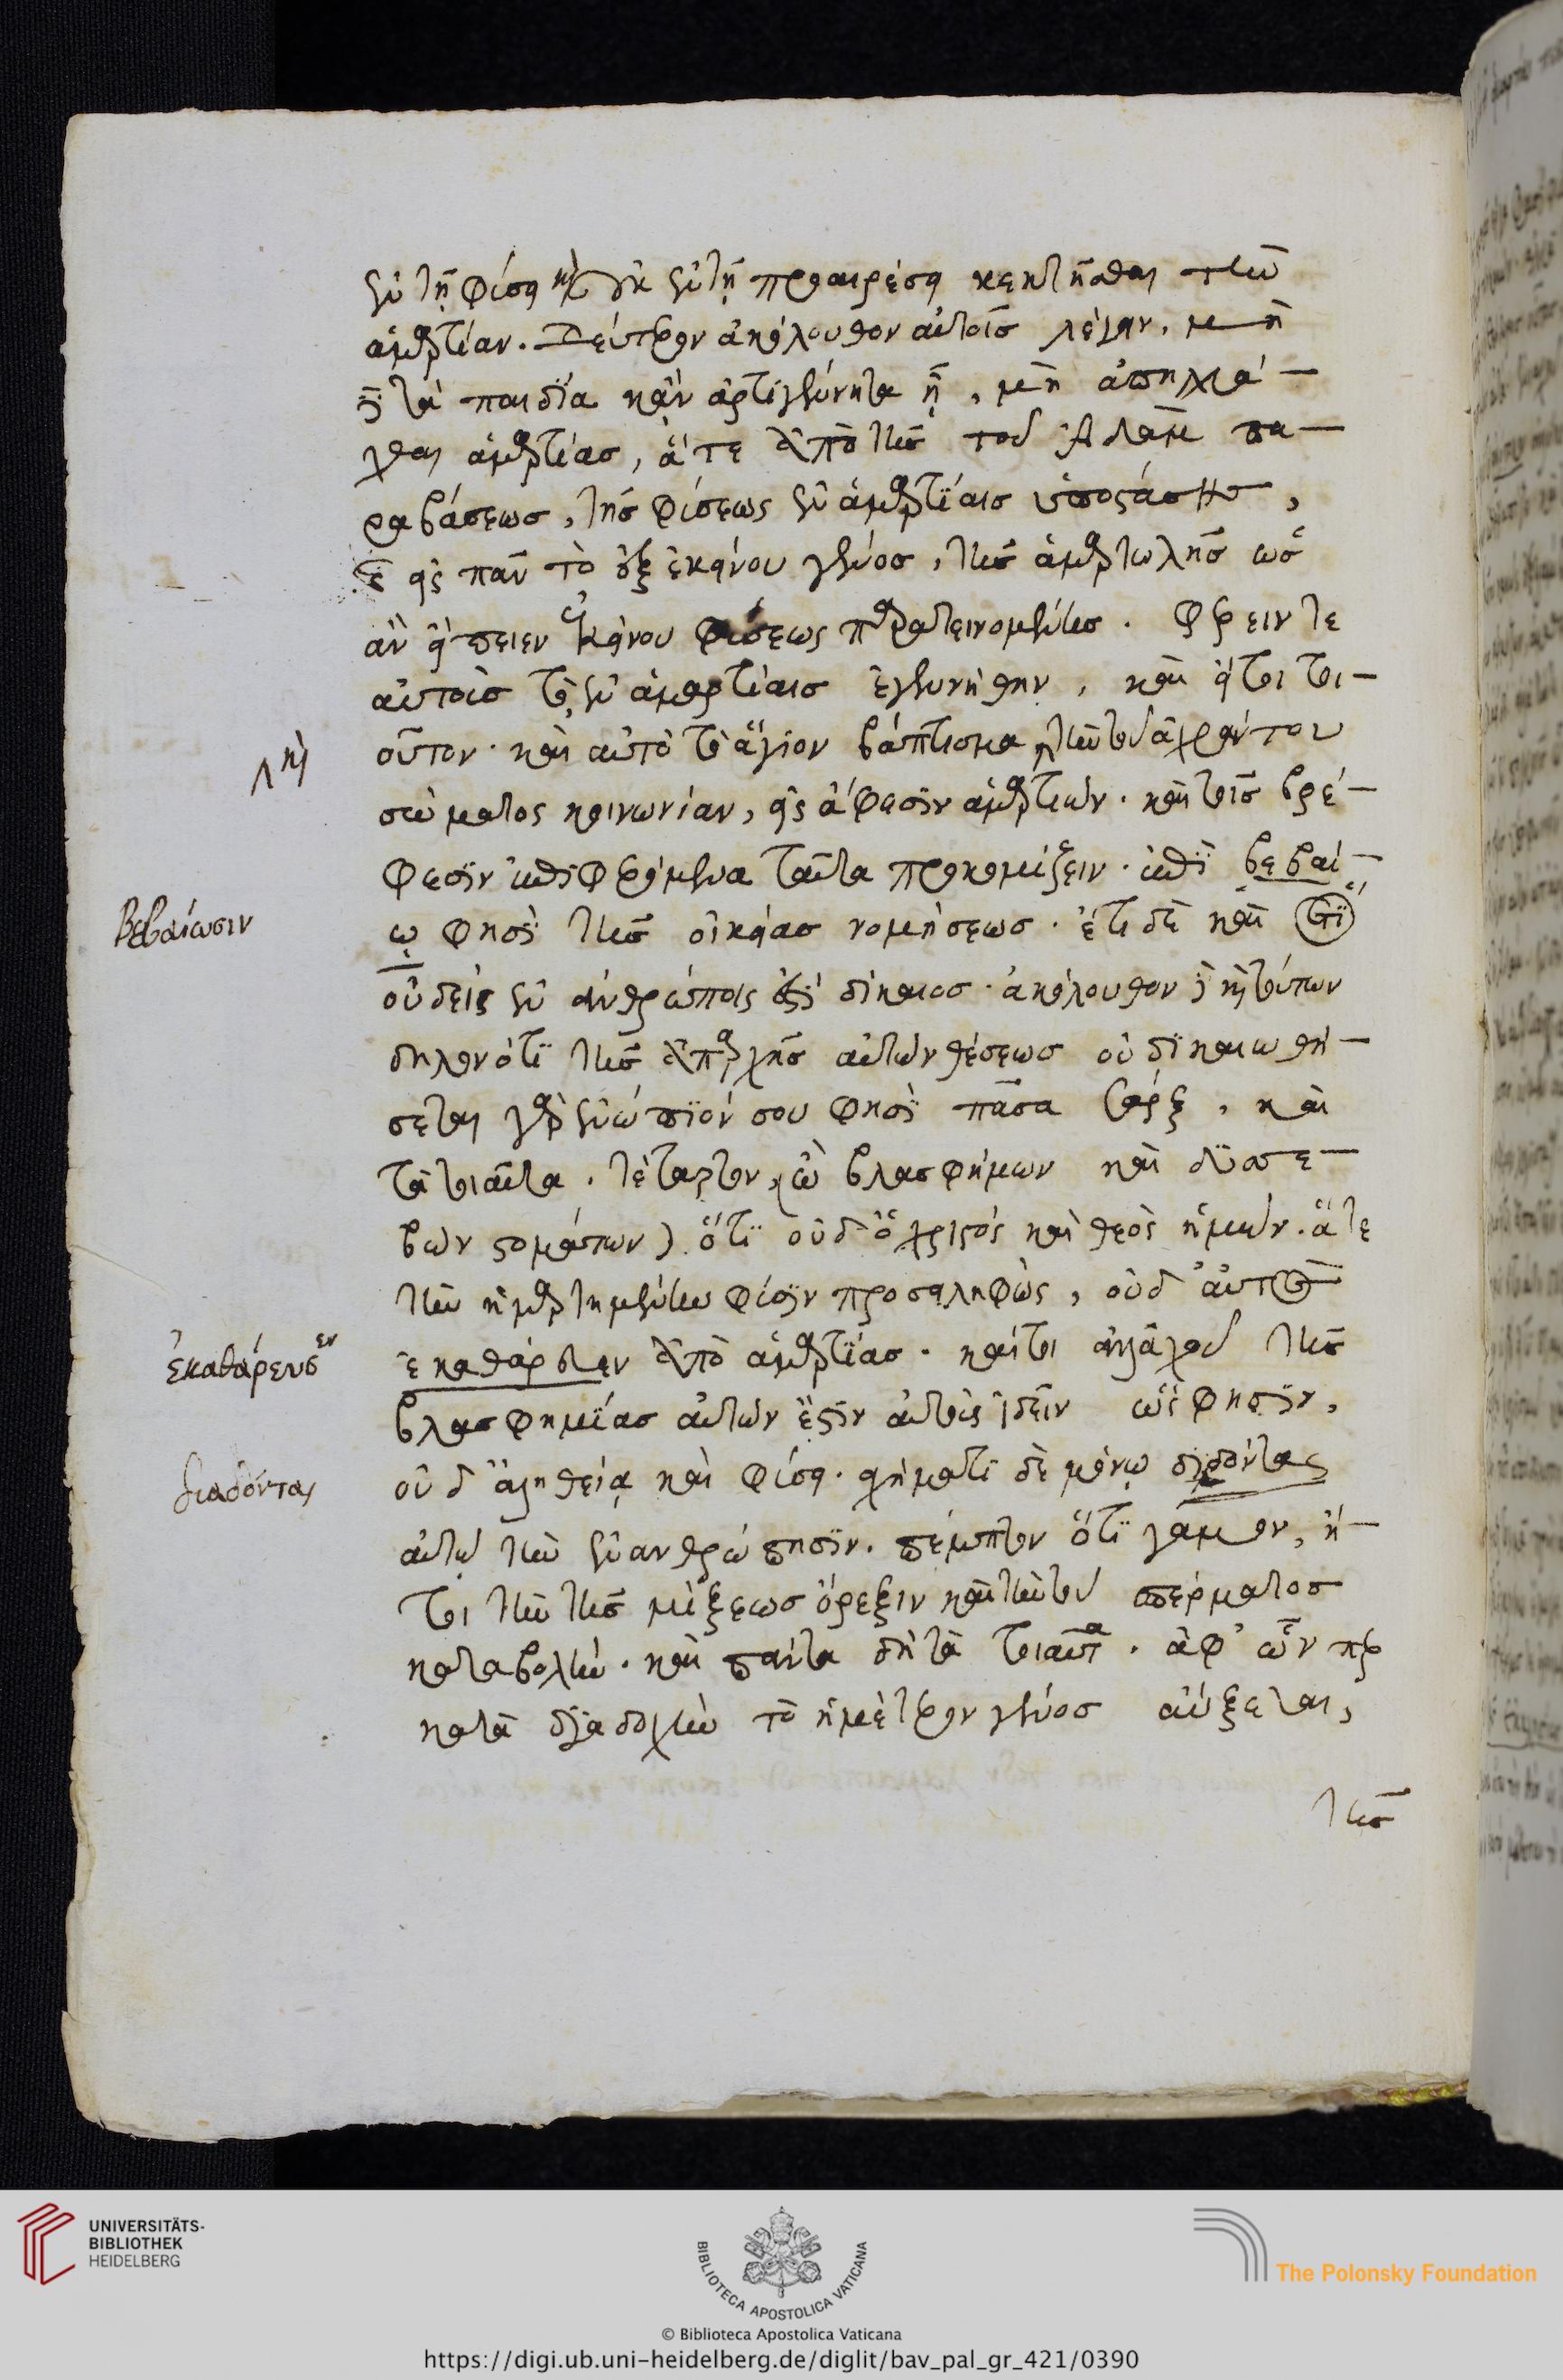 ἐν τῇ φύσει καὶ οὐκ ἐν τῇ προαιρέσει κεκτῆσθαι τὴν
ἁμαρτίαν. Δεύτερον ἀκόλουθον αὐτοῖς λέγειν, μὴ
δὲ τὰ παιδία κἂν ἀρτιγέννητα ᾖ, μὴ ἀπηλλά-
χθαι ἁμαρτίας, ἅτε ἀπὸ τῆς τοῦ Ἀδὰμ πα-
ραβάσεως, τῆς φύσεως ἐν ἁμαρτίαις ὑποστάσης,
καὶ εἰς πᾶν τὸ ἐξ ἐκείνου γένος, τῆς ἁμαρτωλῆς ὡς
ἂν εἴπειεν ἐκείνου φύσεως παρατεινομένης. φέρειν τε
αὐτοῖς τὸ ἐν ἁμαρτίαις ἐγεννήθην, καὶ εἴτι τοι-
οῦτον. καὶ αὐτὸ τὸ ἅγιον βάπτισμα, τὴν τοῦ ἀχράντου
λ καὶ
σώματος κοινωνίαν, εἰς ἄφεσιν ἁμαρτιῶν. καὶ τοῖς βρέ-
φεσιν ἐπιφερόμενα ταῦτα προκομίζειν. ἐπὶ βεβαί-
βεβαίωσιν
ῳ φησὶ τῆς οἰκείας νομήσεως. ἔτι δὲ καὶ τὸ
οὐδεὶς ἐν ἀνθρώποις ἐστὶ δίκαιος. ἀκόλουθον δὲ καὶ τούτων
δηλονότι τῆς ἀπαρχῆς αὐτῶν θέσεως οὐ δικαιωθή-
σεται γὰρ ἐνώπιόν σου φησὶ πᾶσα σάρξ, καὶ
τὰ τοιαῦτα. τέταρτον, (ὢ βλασφήμων καὶ δυσσε-
βῶν στομάτων) ὅτι οὐδ' ὁ χριστὸς καὶ θεὸς ἡμῶν. ἅτε
τὴν ἡμαρτημένην φύσιν προσειληφὼς, οὐδ' αὐτὸ
ἐκαθάρευσεν
ἐκαθάρθην ἀπὸ ἁμαρτίας. καίτοι ἀλλαχοῦ τῆς
βλασφημίας αὐτῶν ἔστιν αὐτοὺς ἰδεῖν ὥς φησιν,
διαδόντας
οὐδ' ἀληθείᾳ καὶ φύσει. σχήματι δὲ μόνῳ διδόντας
αὐτῷ τὴν ἐνανθρώπησιν. πέμπτον ὅτι γάμον, ἤ-
τοι τὴν τῆς μίξεως ὄρεξιν καὶ τὴν τοῦ σπέρματος
καταβολὴν. καὶ πάντα δὴ τὰ τοιαῦτα. ἀφ' ὧν περ
κατὰ διαδοχὴν τὸ ἡμέτερον γένος αὔξεται,
τῆς
UNIVERSITÄTS-
BIBLIOTHEK
HEIDELBERG
BIBLIOTECA APOSTOLICA VATICANA
The Polonsky Foundation
© Biblioteca Apostolica Vaticana
https://digi.ub.uni-heidelberg.de/diglit/bav_pal_gr_421/0390